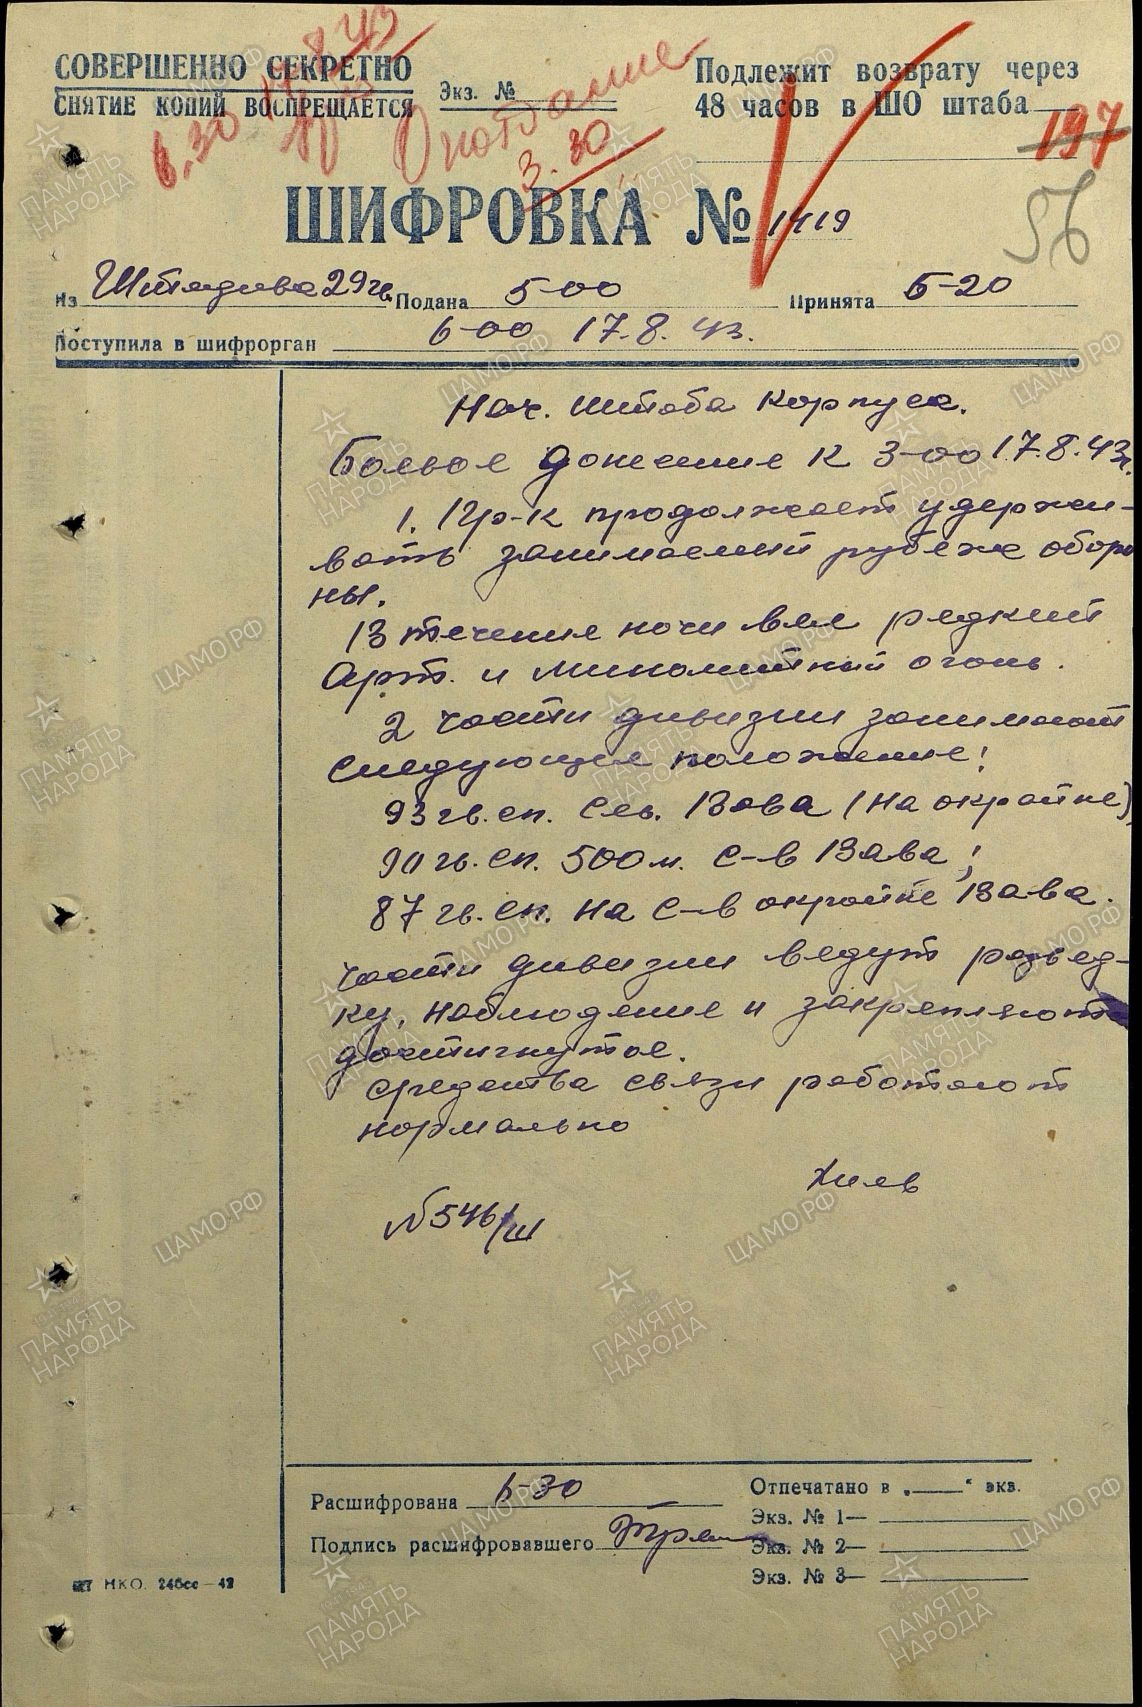 СОВЕРШЕННО СЕКРЕТНО
СНЯТИЕ КОПИЙ ВОСПРЕЩАЕТСЯ
Экз. №
Подлежит возврату через
48 часов в ШО штаба
6.30 17.8.43
3.30
197
56
ШИФРОВКА № 1419
Из Штадива 29 гв. Подана 5-00 Принята 5-20
Поступила в шифрорган 6-00 17.8.43.
Нач. штаба корпуса.
Боевое донесение к 3-00 17.8.43г.
1. Пр-к продолжает удержи-
вать занимаемый рубеж оборо
ны.
В течение ночи вел редкий
Арт. и минометный огонь.
2 части дивизии занимают
следующее положение:
93 гв. сп. Сев. Вава (на окраине)
90 гв. сп. 500 м. С-В Вава;
87 гв. сп. на С-В окраине Вава.
части дивизии ведут развед-
ку, наблюдение и закрепляют
достигнутое.
средства связи работают
нормально
№ 546/ш
Расшифрована 6-30
Подпись расшифровавшего
Отпечатано в „ “ экз.
Экз. № 1—
Экз. № 2—
Экз. № 3—
НКО. 246сс—42
ПАМЯТЬ НАРОДА
ЦАМО.РФ